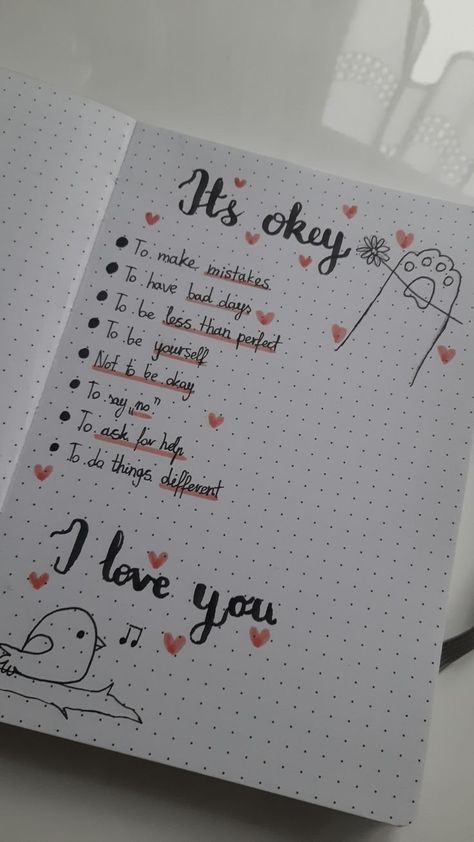 Its okey
• To make mistakes
• To have bad days
• To be less than perfect
• To be yourself
• Not to be okay
• To say „no”
• To ask for help
• To do things different
I love you